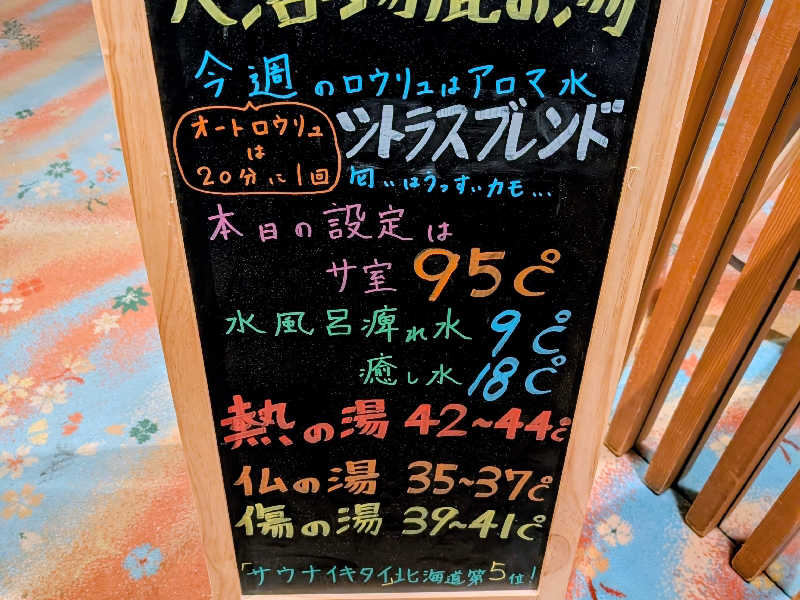 今週のロウリュはアロマ水
オートロウリュ
は
20分に1回
シトラスブレンド
匂いはうっすいカモ...
本日の設定は
サ室 95℃
水風呂 痺れ水 9℃
癒し水 18℃
熱の湯 42~44℃
仏の湯 35~37℃
傷の湯 39~41℃
「サウナイキタイ」北海道第5位!